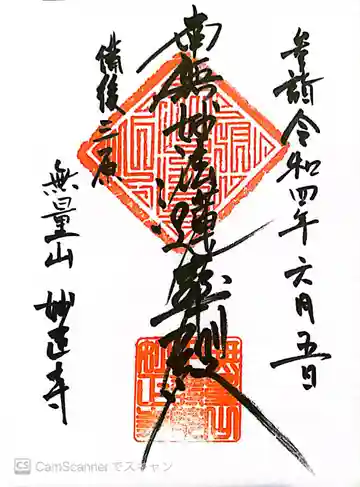 参詣令和四年六月五日
南無妙法蓮華経
備後三原
無量山 妙正寺
CamScannerでスキャン